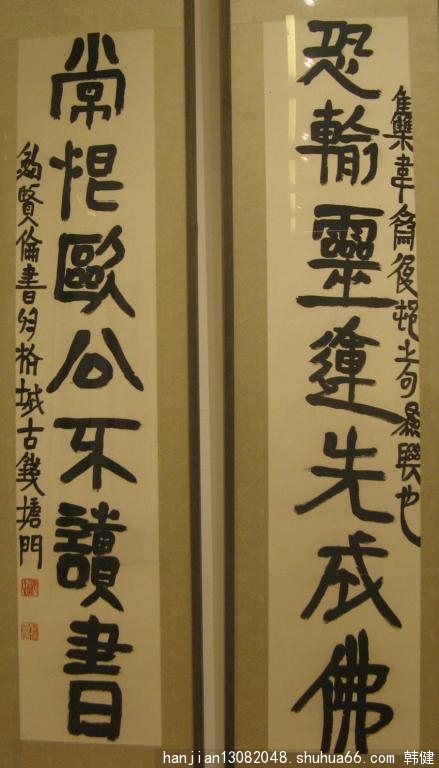 恐輸靈運先成佛
集韋齋後邨之句為聯也
常恨歐公不讀書
鮑賢倫書於杭城古錢塘門
hanjian13082048.shuhua66.com 韩健